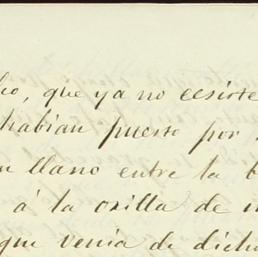 que ya noecsiste
habian puesto por
llano entre la
á la orilla de
que venia de dicha